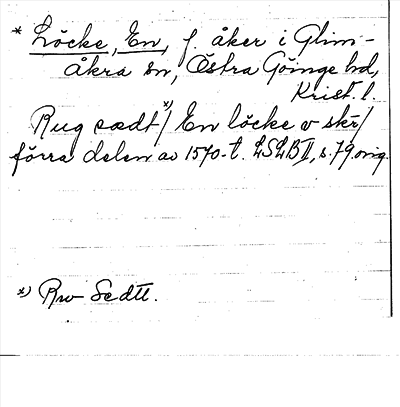 * Löcke, En, f åker i Glim-
åkra sn, Östra Göinge hd,
Krist. l.
Rug sædt *) / En löcke v skr /
förra delen av 1570-t. LSLB II, s. 79 orig.
*) Rv Sedtt.